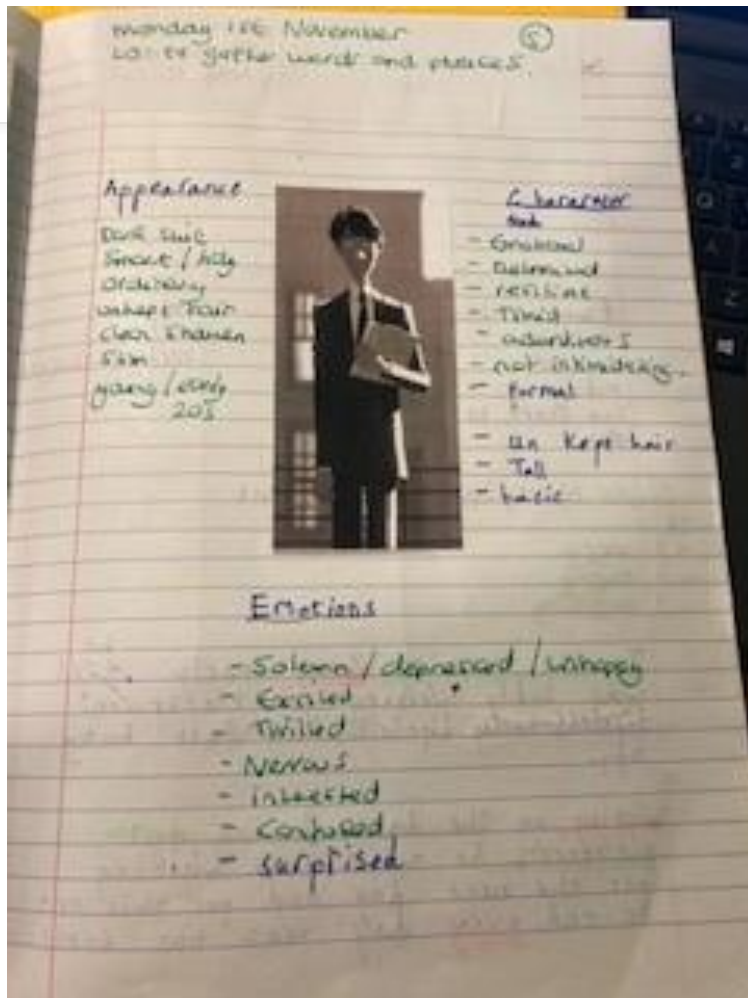 Monday 1st November
LO: to gather words and phrases.
5
Appearance
Dark suit
Smart /
ordinary
unkept hair
clean shaven
Slim
young / early
20s
Character
- 
- Determined
- resiliant
- Timid
- 
- not intimidating
- Formal
- Un Kept hair
- Tall
- basic
Emotions
- Solemn / depressed / unhappy
- Excited
- Thrilled
- Nervous
- interested
- Confused
- surprised